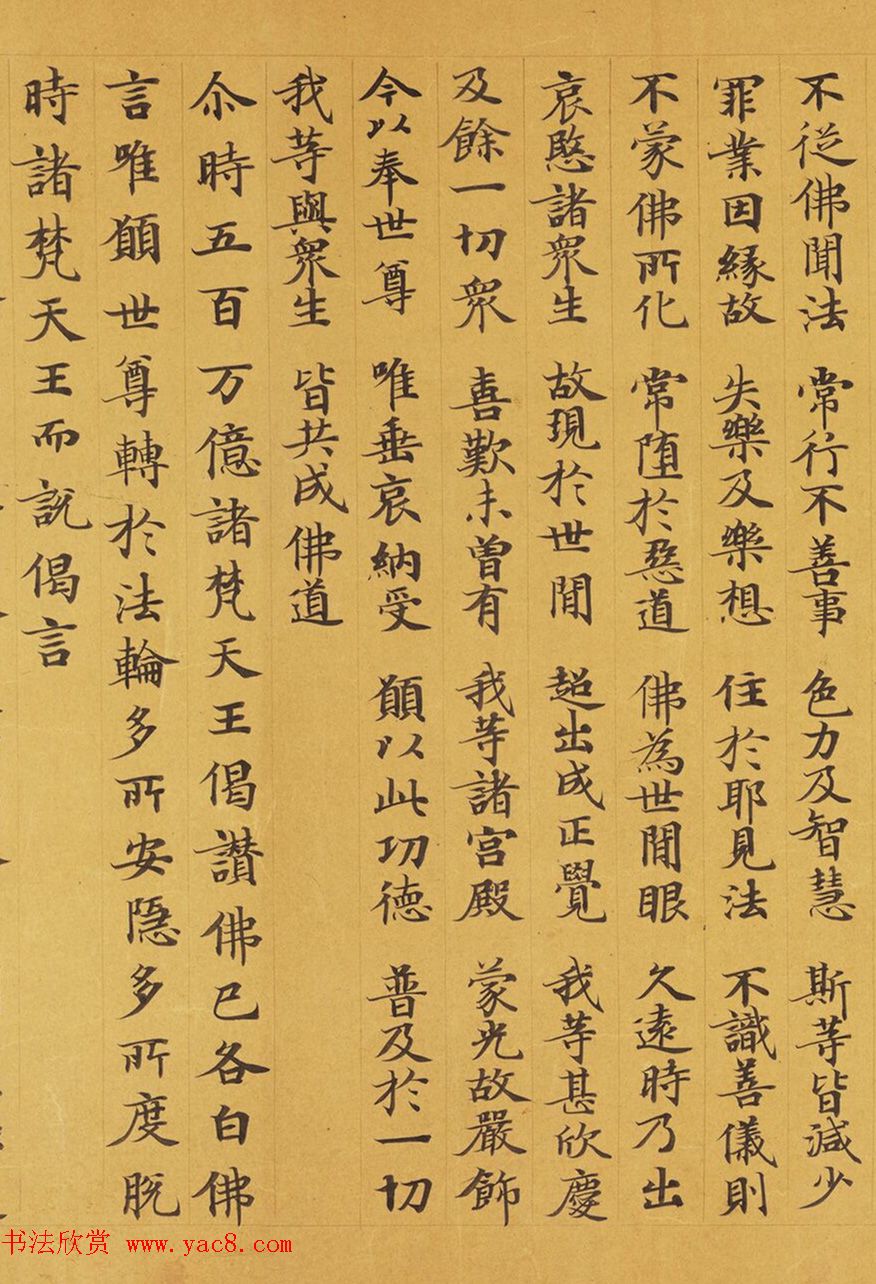 不從佛聞法 常行不善事 色力及智慧 斯等皆減少
罪業因緣故 失樂及樂想 住於耶見法 不識善儀則
不蒙佛所化 常堕於惡道 佛為世間眼 久遠時乃出
哀愍諸衆生 故現於世間 超出成正覺 我等甚欣慶
及餘一切衆 喜歎未曾有 我等諸宮殿 蒙光故嚴飾
今以奉世尊 唯垂哀納受 願以此功德 普及於一切
我等與衆生 皆共成佛道
尒時五百万億諸梵天王偈讃佛已各白佛
言唯願世尊轉於法輪多所安隱多所度脫
時諸梵天王而說偈言
书法欣赏 www.yac8.com